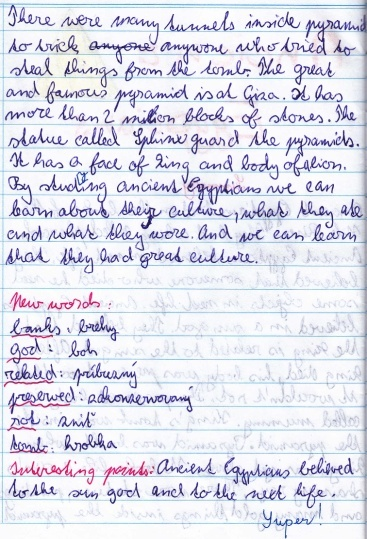 There were many tunnels inside pyramid
to trick anyone anywone who tried to
steal things from the tomb. The great
and famous pyramid is at Giza. It has
more than 2 million blocks of stones. The
statue called Sphinx guard the pyramids.
It has a face of King and body of alion.
By studing ancient Egyptians we can
learn about their culture, what they ate
and what they wore. And we can learn
that they had great culture.
New words:
banks: brehy
god: boh
related: príbuzný
preserved: zakonzervovaný
rot: zniť
tomb: hrobka
Interesting points: Ancient Egyptians believed
to the sun god and to the next life.
Yuper!